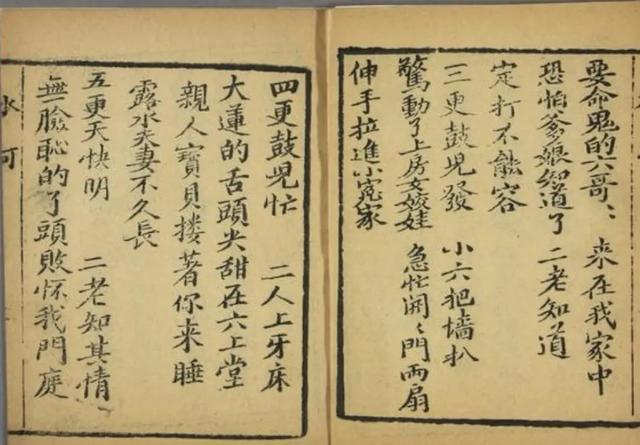 要命鬼的六哥〻 来在我家中
恐怕爹娘知道了 二老知道
定打不能容
三更鼓児發 小六把墻扒
驚動了上房女姣娃 急忙開〻門兩扇
伸手拉進小寃家
四更鼓児忙 二人上牙床
大蓮的舌頭尖甜在六上堂
親人寶貝摟著你来睡
露水夫妻不久長
五更天快明 二老知其情
無臉恥的了頭敗怀我門庭
水河